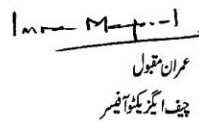 عمران مقبول
چیف ایگزیکٹو آفیسر